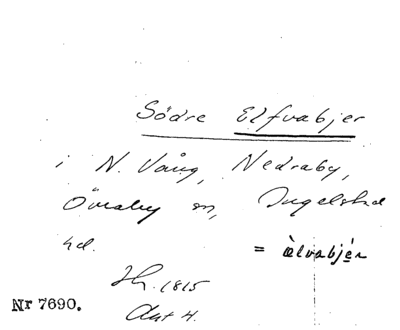 Södre Elfvabjer
i N. Vång, Nedraby,
Övraby sn, Ingelstad
hd.
= èlvabjér
Lh. 1815
Akt 4.
Nr 7690.